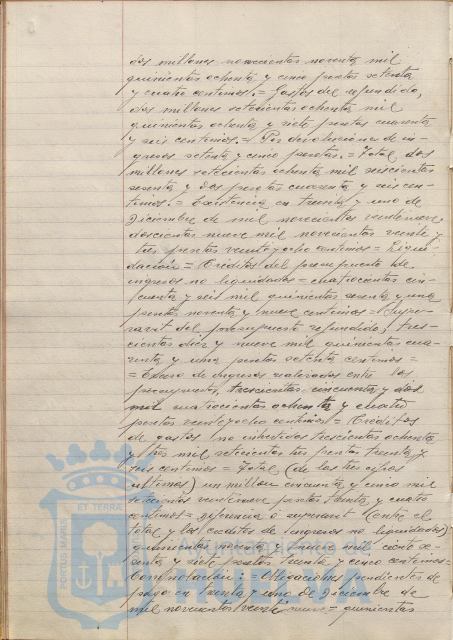 dos millones novecientas noventa mil
quinientas ochenta y cinco pesetas setenta
y cuatro centimos.= Gastos del refundido,
dos millones setecientas ochenta mil
quinientas ochenta y siete pesetas cuarenta
y seis centimos.= Por devoluciones de in-
gresos setenta y cinco pesetas.= Total dos
millones setecientas ochenta mil seiscientas
sesenta y dos pesetas cuarenta y seis cen-
timos.= Existencia en treinta y uno de
Diciembre de mil novecientos veintinueve,
doscientas nueve mil novecientas veinte y
tres pesetas veinte y ocho centimos = Liqui-
dación = Créditos del presupuesto de
ingresos no liquidados = cuatrocientas cin-
cuenta y seis mil quinientas sesenta y una
pesetas noventa y nueve centimos = Supe-
ravit del presupuesto refundido, tres-
cientas diez y nueve mil quinientas cua-
renta y una pesetas setenta centimos =
= Exceso de ingresos realizados entre los
presupuestos, trescientas cincuenta y dos
mil cuatrocientas ochenta y cuatro
pesetas veinte y ocho centimos = Créditos
de gastos no invertidos trescientas ochenta
y tres mil setecientas tres pesetas treinta y
seis centimos = Total (de las tres cifras
ultimas) un millon cincuenta y cinco mil
setecientas veintinueve pesetas treinta y cuatro
centimos = diferencia ó superavit (entre el
total y los creditos de ingresos no liquidados)
quinientas noventa y nueve mil ciento se-
senta y siete pesetas treinta y cinco centimos=
Comprobación := Obligaciones pendientes de
pago en treinta y uno de Diciembre de
mil novecientos veinte nueve = quinientas
PORTUS MARIS
ET TERRA
Ayuntamiento de